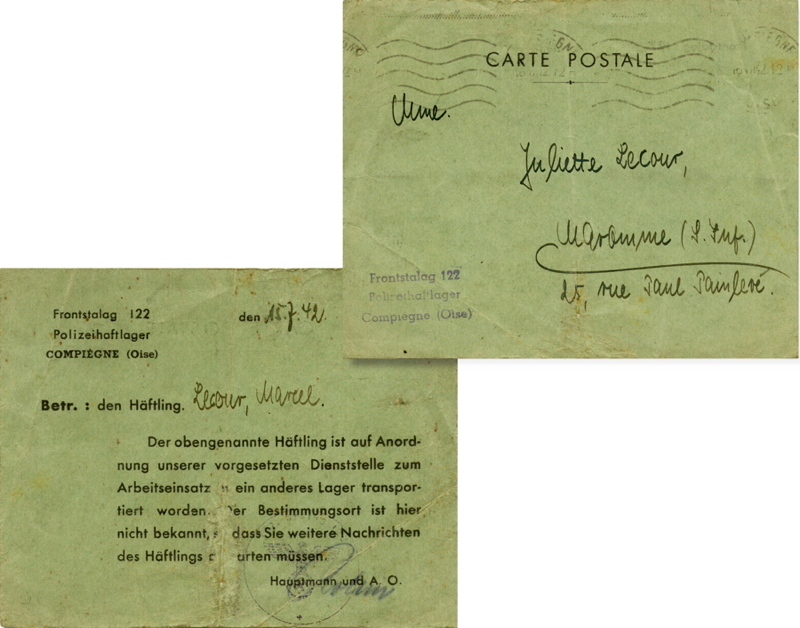 CARTE POSTALE
Mme.
Juliette Lecour,
Maromme (S. Inf.)
25, rue Paul Painlevé.
Frontstalag 122
Polizeihaftlager
Compiegne (Oise)
Frontstalag 122
den 15.7.42.
Polizeihaftlager
COMPIÈGNE (Oise)
Betr. : den Häftling. Lecour, Marcel.
Der obengenannte Häftling ist auf Anord-
nung unserer vorgesetzten Dienststelle zum
Arbeitseinsatz ein anderes Lager transpor-
tiert worden. Der Bestimmungsort ist hier
nicht bekannt, dass Sie weitere Nachrichten
des Häftlings müssen.
Hauptmann und A. O.